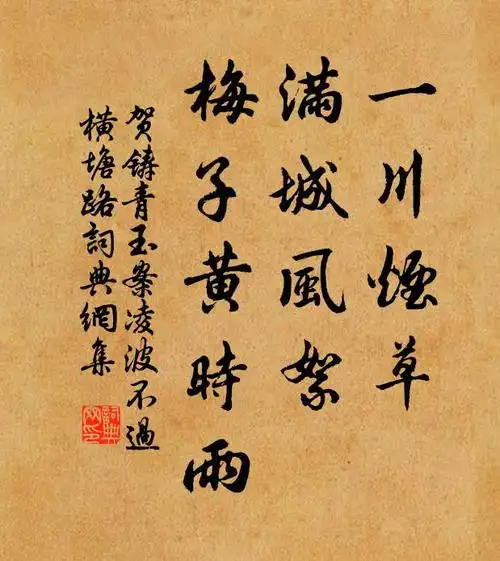 一川煙草
滿城風絮
梅子黄時雨
贺鑄青玉案凌波不過
橫塘路詞典網集